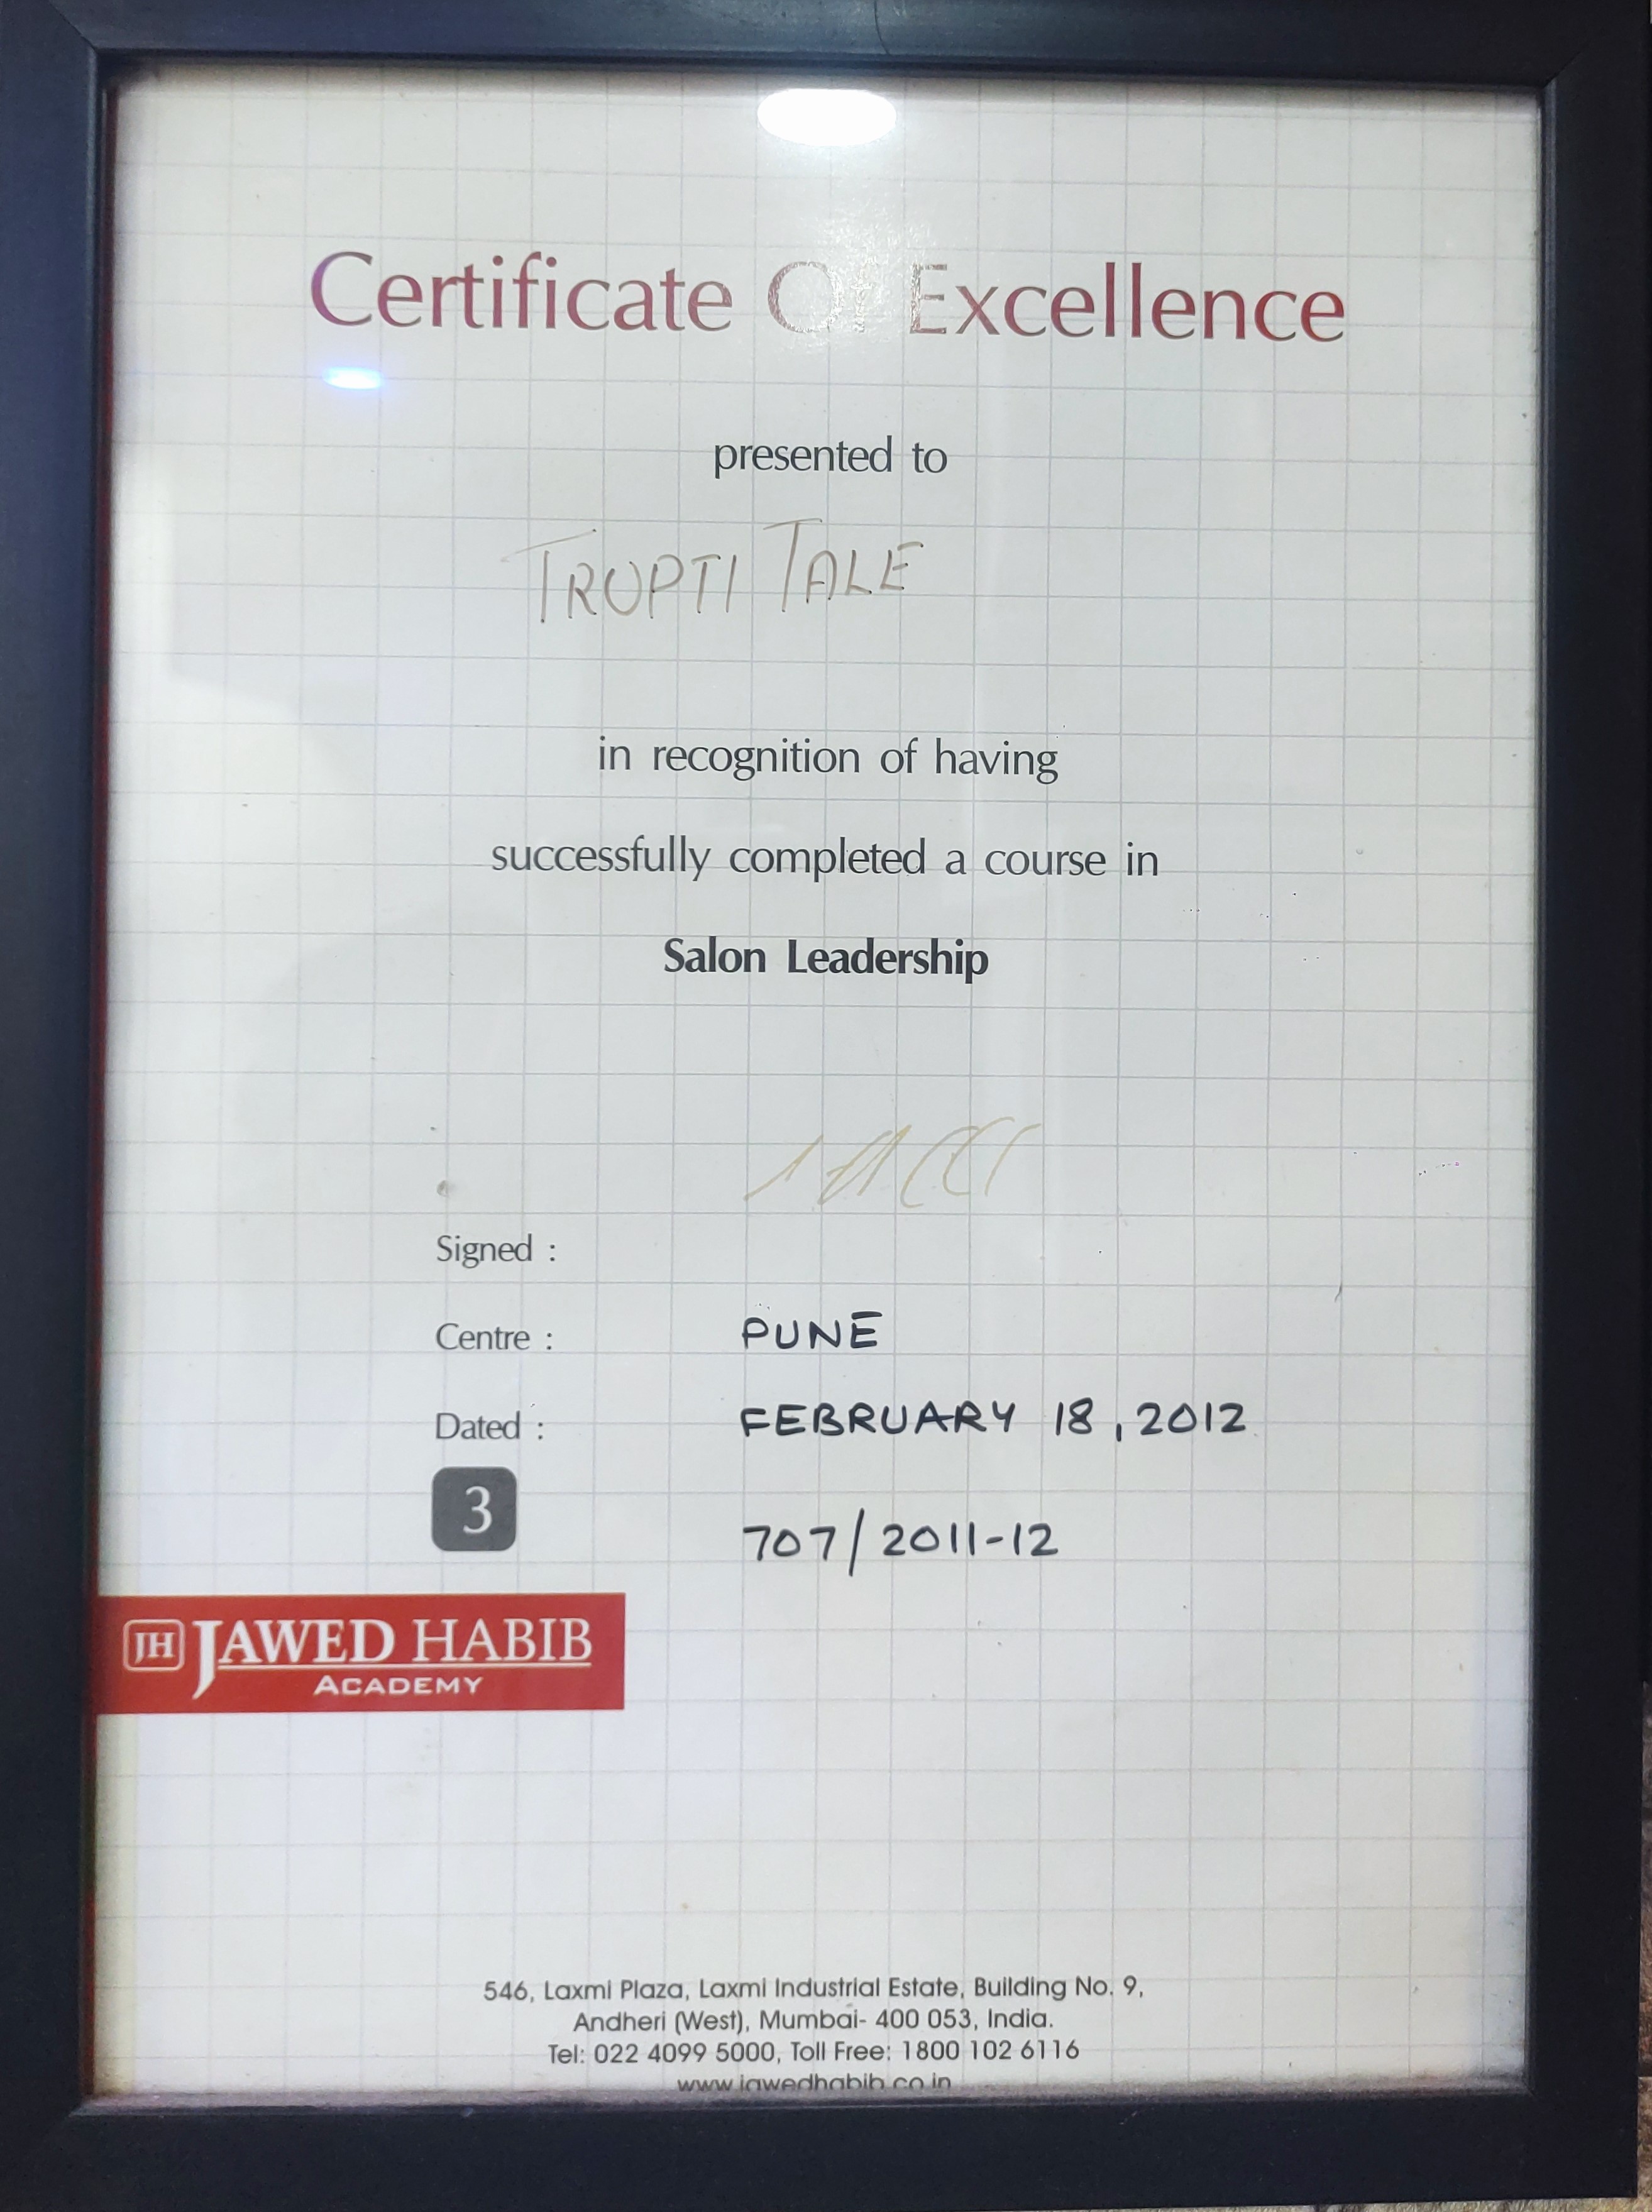 Certificate Of Excellence
presented to
TRUPTI TALE
in recognition of having
successfully completed a course in
Salon Leadership
Signed :
Centre : PUNE
Dated : FEBRUARY 18, 2012
3 707/2011-12
JH JAWED HABIB
ACADEMY
546, Laxmi Plaza, Laxmi Industrial Estate, Building No. 9,
Andheri (West), Mumbai- 400 053, India.
Tel: 022 4099 5000, Toll Free: 1800 102 6116
www.jawedhabib.co.in